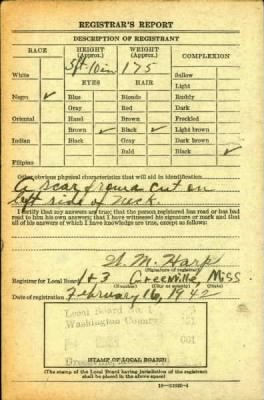 REGISTRAR'S REPORT
DESCRIPTION OF REGISTRANT
RACE HEIGHT (Approx.) WEIGHT (Approx.) COMPLEXION
5ft-10in 175
White Sallow
EYES HAIR Light
Negro ✓ Blue Blonde Ruddy
Gray Red Dark
Oriental Hazel Brown Freckled
Brown ✓ Black ✓ Light brown
Indian Black Gray Dark brown
Bald Black ✓
Filipino
Other obvious physical characteristics that will aid in identification
A scar around cut on
left side of neck.
I certify that my answers are true; that the person registered has read or has had
read to him his own answers; that I have witnessed his signature or mark and that
all of his answers of which I have knowledge are true, except as follows:
S. M. Harp
(Signature of registrar)
Registrar for Local Board 1+3 Greenville Miss.
(Number) (City or county) (State)
Date of registration February 16, 1942
Local Board No. 1
Washington County
001
STAMP OF LOCAL BOARD
(The stamp of the Local Board having jurisdiction of the registrant
shall be placed in the above space)